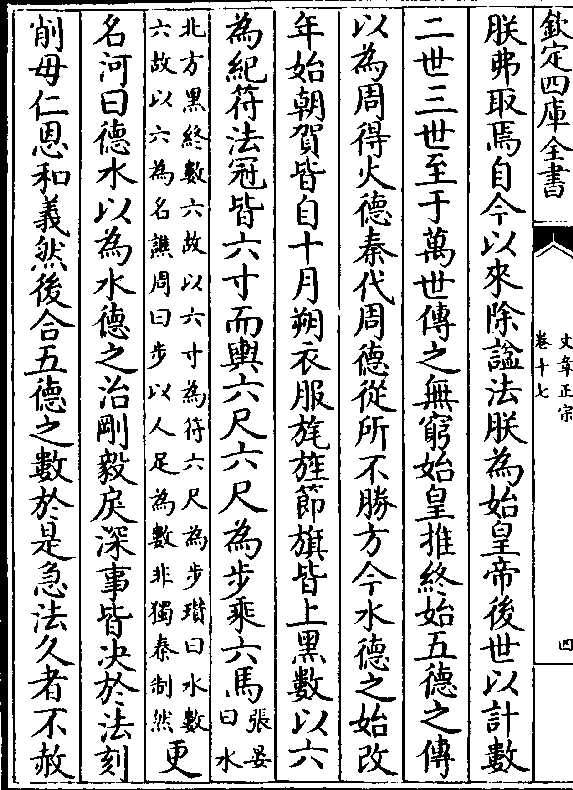 欽定四庫全書
文章正宗
卷十七
四
朕弗取焉自今以來除諡法朕為始皇帝後世以計數
二世三世至于萬世傳之無窮始皇推終始五德之傳
以為周得火德秦代周德從所不勝方今水德之始改
年始朝賀皆自十月朔衣服旄旌節旗皆上黑數以六
為紀符法冠皆六寸而輿六尺六尺為步乘六馬
張晏
曰水
北方黑終數六故以六寸為符六尺為步瓚曰水數
六故以六為名譙周曰步以人足為數非獨秦制然
更
名河曰德水以為水德之治剛毅戾深事皆決於法刻
削毋仁恩和義然後合五德之數於是急法久者不赦